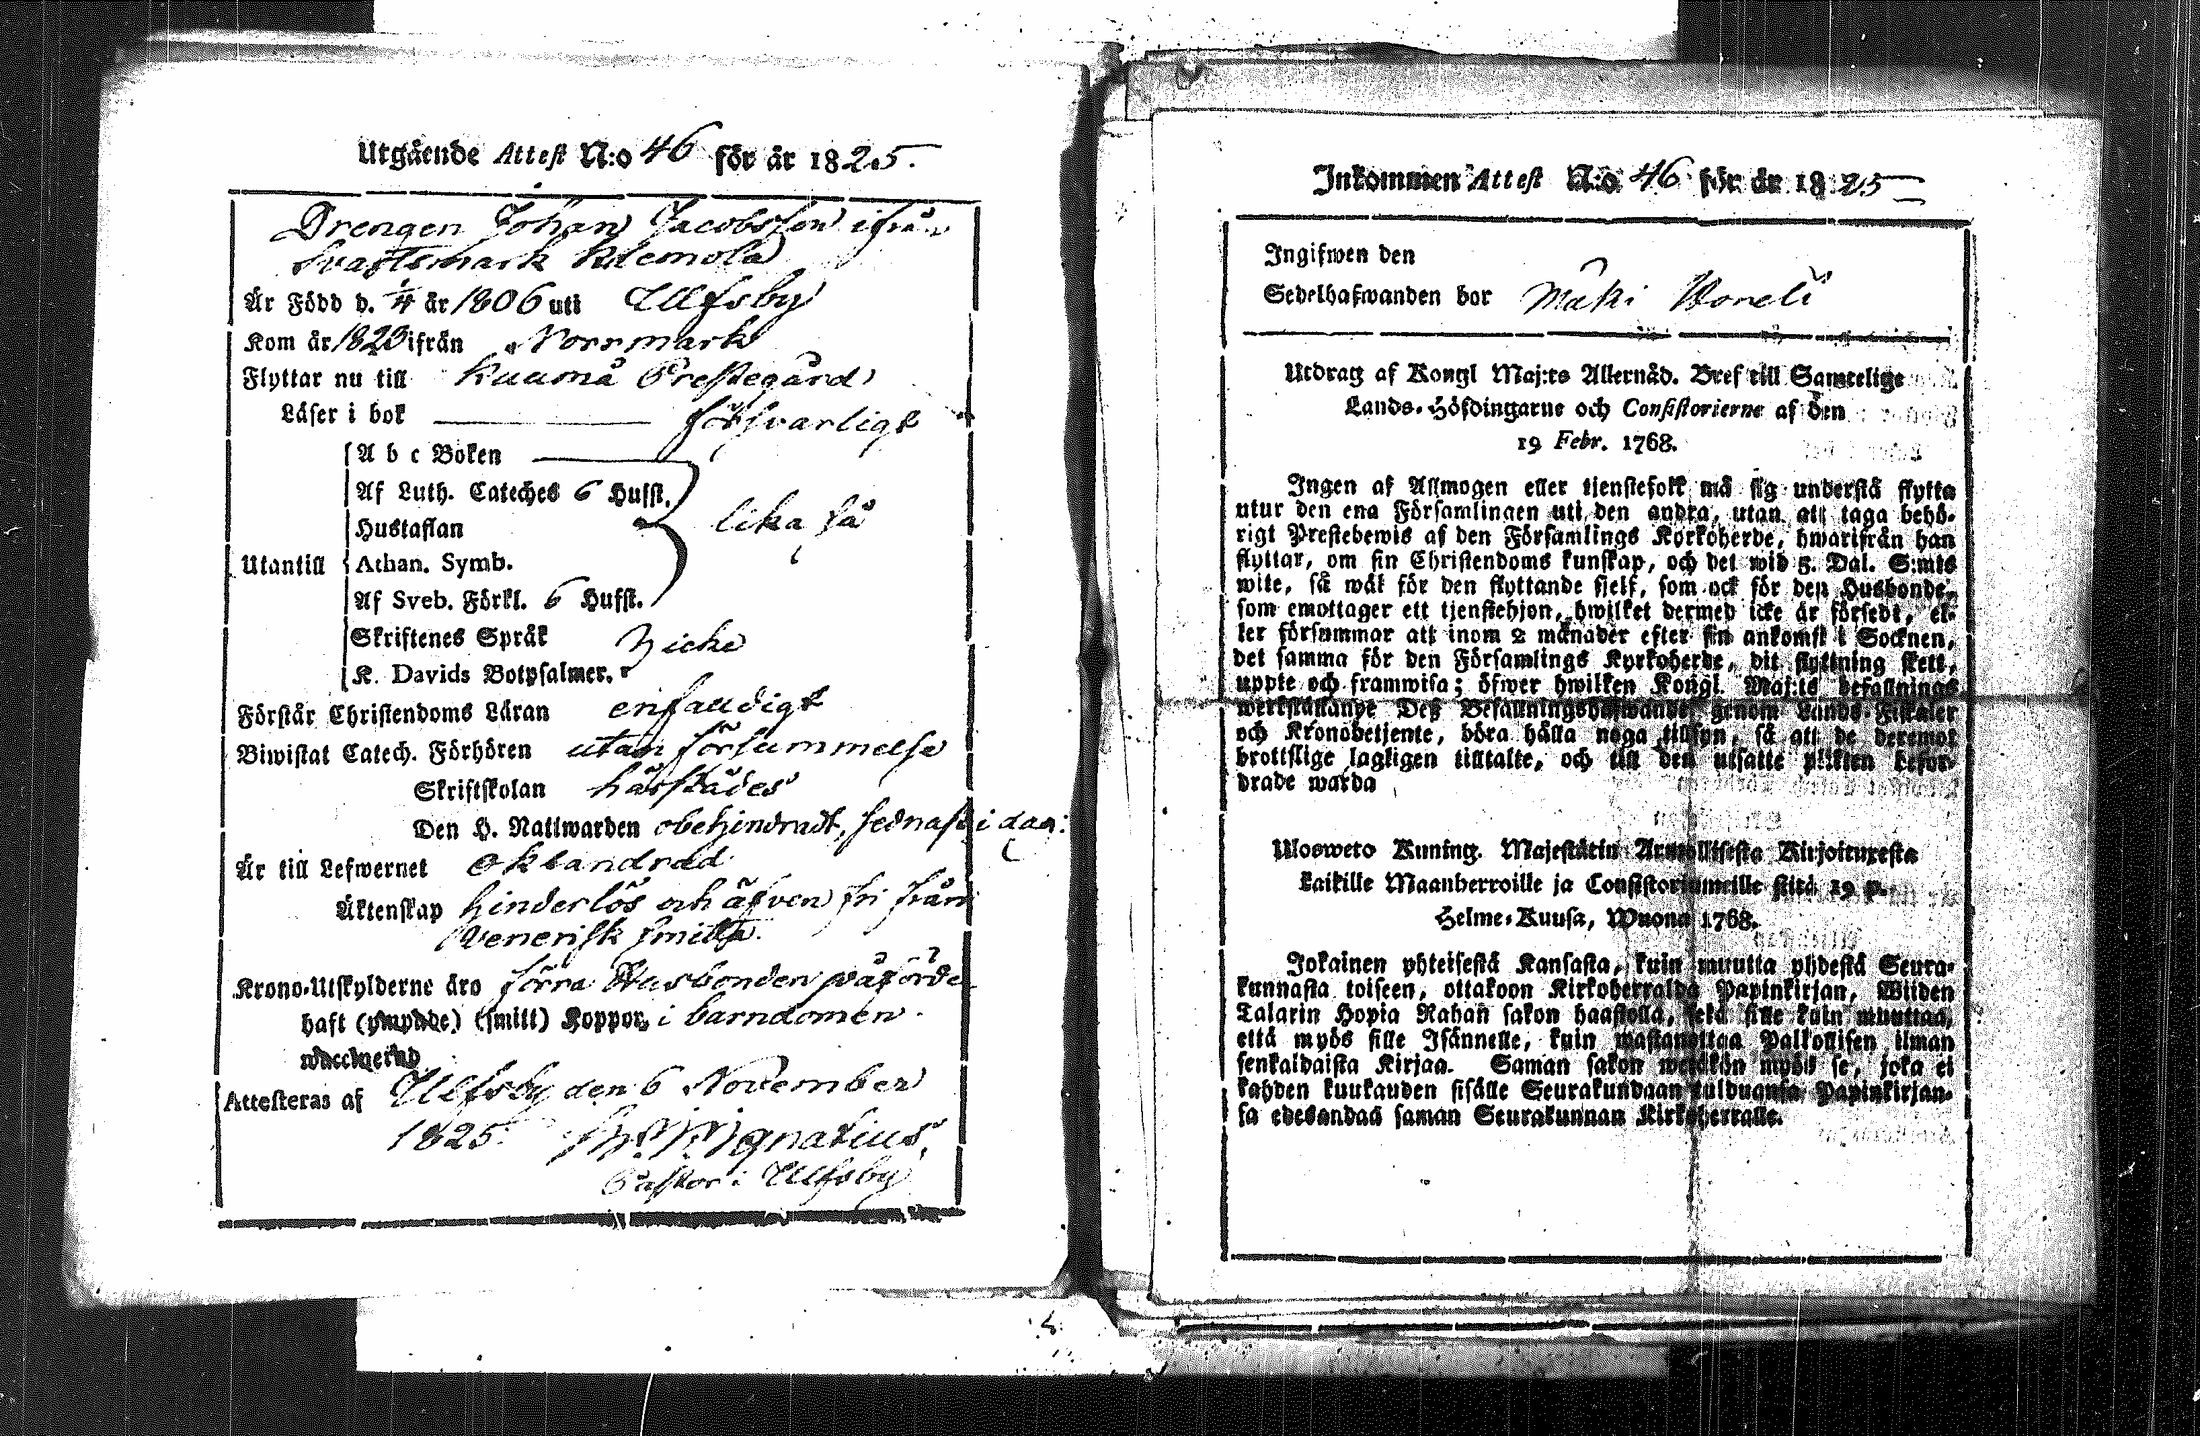 Utgående Attest N:o 46 för år 1825.
Drengen Johan Jacobsson ifrån
Svartsmark Klemola
Är Född d. 1/4 år 1806 uti Ulfsby
Kom år 1823 ifrån Norrmark
Flyttar nu till Kuumå Prestegård
Läser i bok försvarligt
A b c Boken
Af Luth. Cateches 6 Hufst.
Hustaflan lika så
Utantill Athan. Symb.
Af Sveb. Förkl. 6 Hufst.
Skriftenes Språk Icke
K. Davids Botpsalmer.
Förstår Christendoms Läran enfaldigt
Biwistat Catech. Förhören utan försummelse
Skriftskolan härstädes
Den H. Nattwarden obehindradt, sednast i dag:
Är till Lefwernet oklandrad
Äktenskap hinderlös och äfven fri från
Venerisk smitta.
Krono-Utskylderne äro förra Husbonden påförde
haft (ympade) (smitt) Koppor, i barndomen.
waccinerad
Attesteras af Ulfsby den 6 November
1825. Ignatius,
Pastor i Ulfsby
Inkommen Attest N:o 46 för år 1825
Ingifwen den
Sedelhafwanden bor Mäki Woneli
Utdrag af Kongl Maj:ts Allernåd. Bref till Samtelige
Lands-Höfdingarne och Consistorierne af den
19 Febr. 1768.
Ingen af Allmogen eller tjenstefolk må sig understå flytta
utur den ena Församlingen uti den andra, utan att taga behö-
rigt Prestebewis af den Församlings Kyrkoherde, hwarifrån han
flyttar, om sin Christendoms kunskap, och det wid 5. Dal. S:mts
wite, så wäl för den flyttande sjelf, som ock för den Husbonde,
som emottager ett tjenstehjon, hwilket dermed icke är försedt, el-
ler försummar att inom 2 månader efter sin ankomst i Socknen,
det samma för den Församlings Kyrkoherde, dit flyttning skett,
uppte och framwisa; öfwer hwilken Kongl. Maj:ts befallnings
werkställande Deß Befallningshafwande genom Lands-Fiskaler
och Kronobetjente, böra hålla noga tillsyn, så att de deremot
brottslige lagligen tilltalte, och till den utsatte plikten befor-
drade warda
Ulosweto Kuning. Majestätin Armollisesta Kirjoituxesta
kaikille Maanherroille ja Consistoriumeille siitä 19 p.
Helme-Kuusa, Wuona 1768.
Jokainen yhteisestä Kansasta, kuin muutta yhdestä Seura-
kunnasta toiseen, ottakoon Kirkoherralda Papinkirjan, Wiiden
Talarin Hopia Rahan sakon haastolla, sekä sille kuin muuttaa,
että myös sille Isännelle, kuin wastanottaa Palkollisen ilman
senkaldaista Kirjaa. Saman sakon wetäkön myös se, joka ei
kahden kuukauden sisälle Seurakundaan tulduansa Papinkirjan-
sa edesandaa saman Seurakunnan Kirkoherralle.